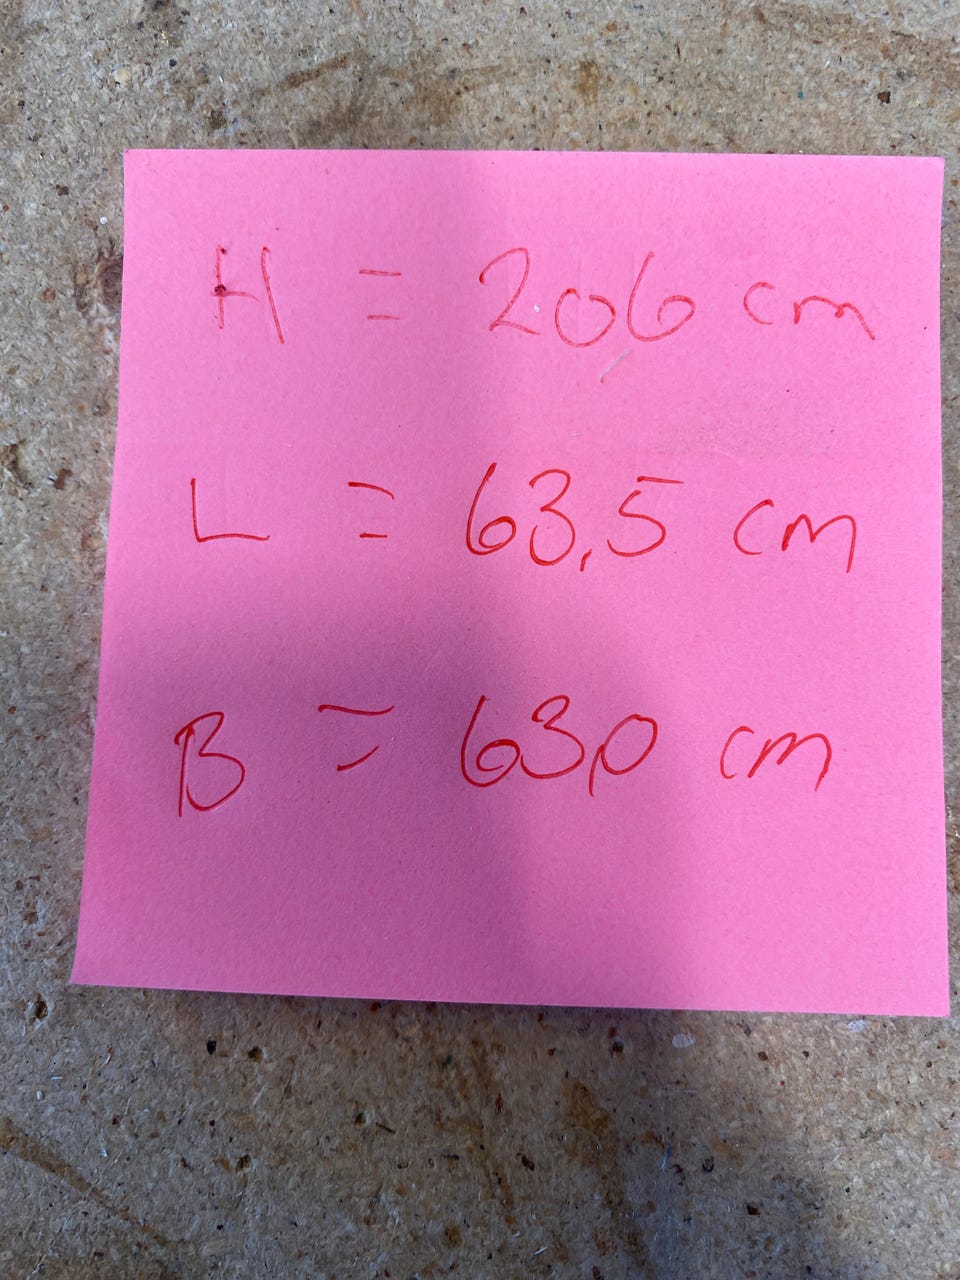 H = 20,6 cm
L = 63,5 cm
B = 63,0 cm